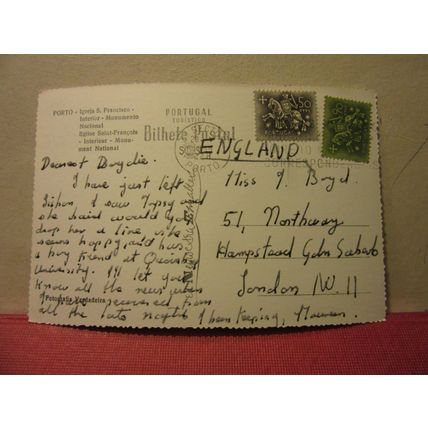 PORTO - Igreja S. Francisco -
Interior - Monumento
Nacional
Eglise Saint-François
- Interieur - Monu-
ment National
PORTUGAL
TURÍSTICO
Bilhete Postal
50
PORTUGAL
ENGLAND
PORTO
Dearest Boydie.
I have just left
Lisbon, I saw Topsy and
she said would you
drop her a line, she
seems happy, and has
a boy friend at
University. I'll let you
know all the news when
I have recovered from
all the late nights I been keeping, Maureen.
Fotografia Verdadeira
Miss J. Boyd
51, Northway.
Hampstead Gdn Suburb
London N.W. 11